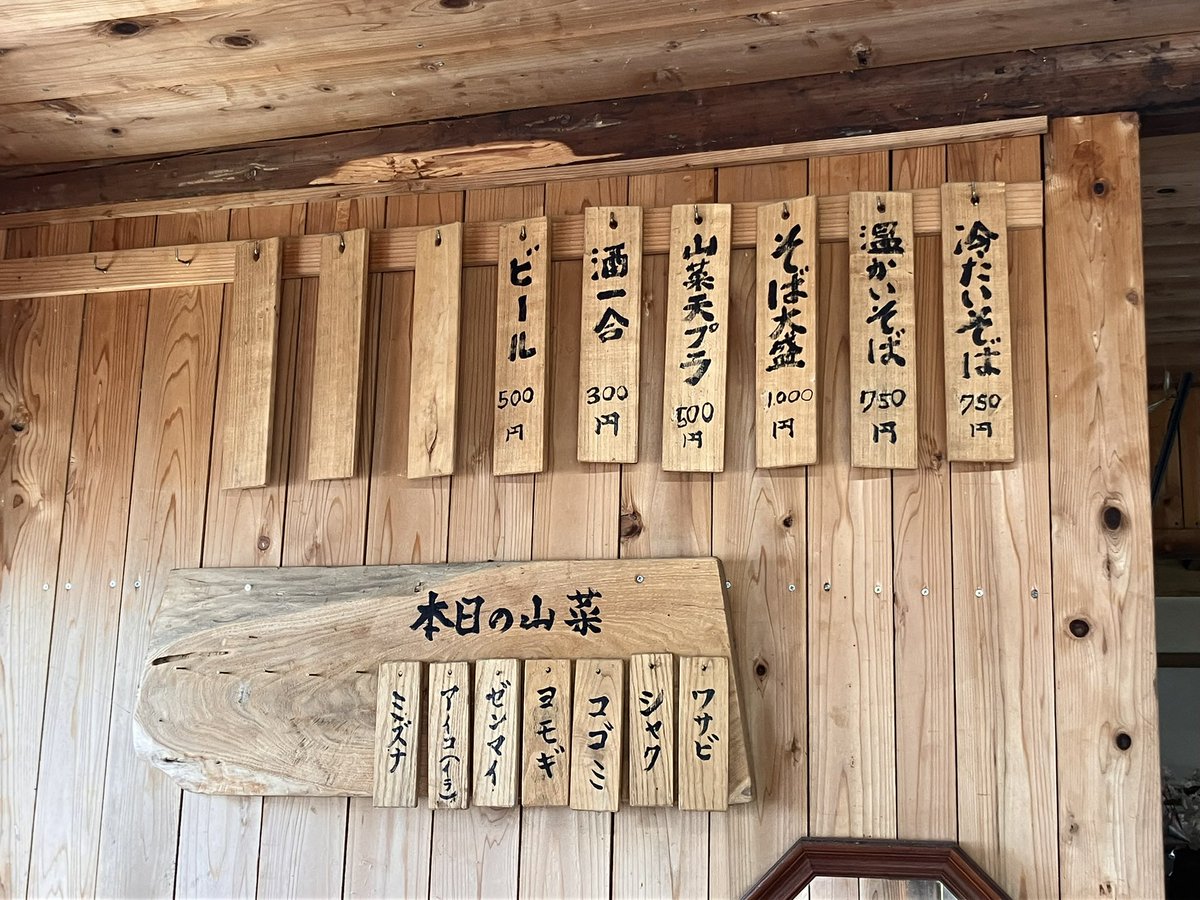 冷たいそば 750円
温かいそば 750円
そば大盛 1000円
山菜天プラ 500円
酒一合 300円
ビール 500円
本日の山菜
ワサビ
シャク
コゴミ
ヨモギ
ゼンマイ
アイコ(イラ)
ミズナ